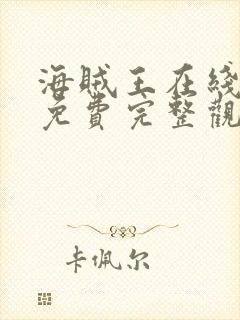 海贼王在线
免費完整觀
卡佩尔